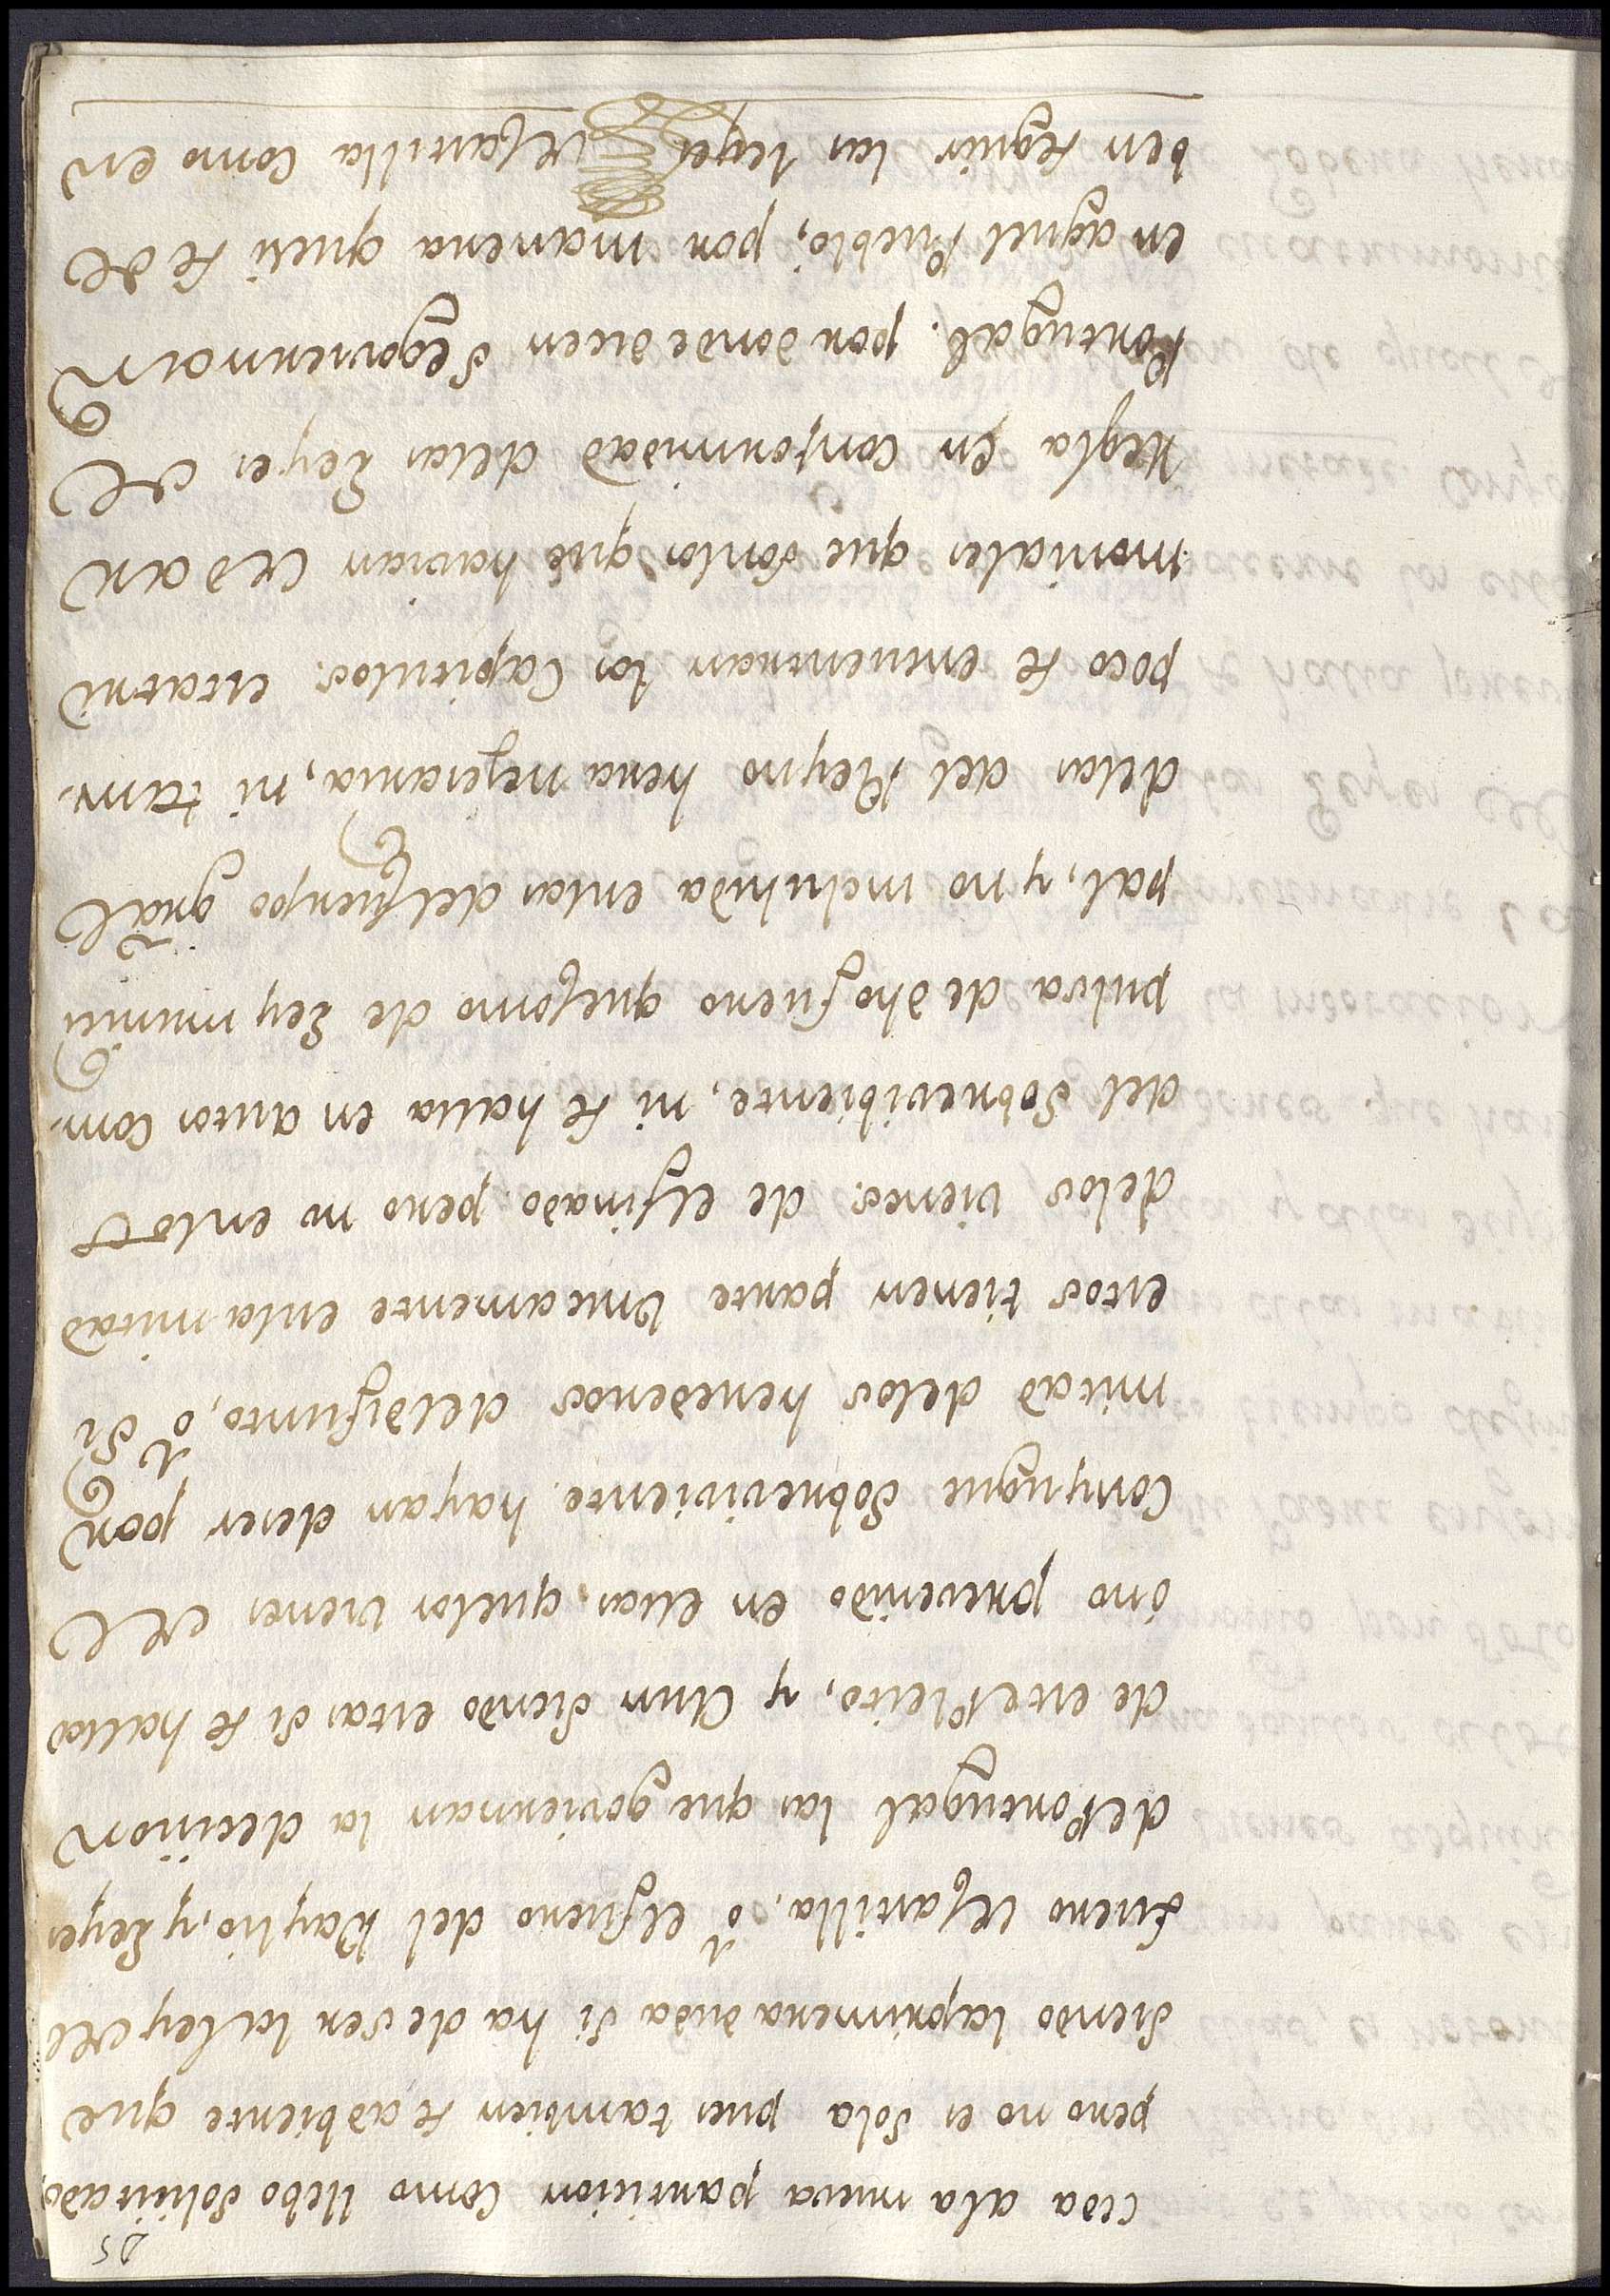 25
cisa ala nueva particion como llebo solicitado,
pero no es sola pues tambien se adbiente que
siendo laprimera duda si ha de ser la ley del
fuero Castilla, ó el fuero del Baylio, y Leyes
de Portugal las que goviernan la decision
de este Pleito, y Aun siendo estas si se halla
óno prevenido en ellas, quelos vienes del
Conyugue Sobreviviente hayan deser por
mitad delos herederos deldifunto, ó si
estos tienen parte Unicamente enla mitad
delos vienes de elfinado pero no enlos
del Sobrevibiente, ni se halla en autos com-
pulsa de dho fuero quecomo de Ley munici
pal, y no incluhida enlas delCuerpo gral
delas del Reyno hera nezesaria, ni tam-
poco se encuentran los Capitulos matri
moniales que sonlos que havian de dar
Regla en conformidad delas Leyes de
Portugal, por donde dicen Segoviernan
en aquel Pueblo, por manera quesi se de
ben seguir las leyes de Castilla como en